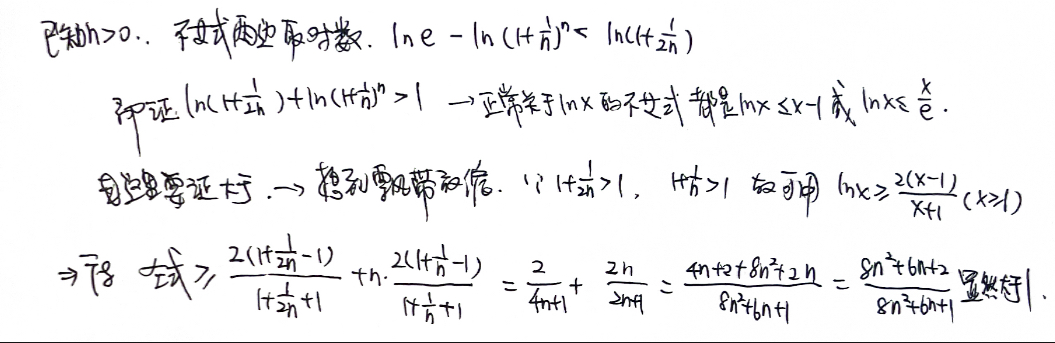 已知n>0.. 不等式两边取对数. ln e - ln(1+1/n)^n < ln(1+1/2n)
即证 ln(1+1/2n)+ln(1+1/n)^n > 1 → 正常关于lnx的不等式都是lnx≤x-1或lnx≤x/e.
但这里要证大于. → 想到飘带放缩. ∵ 1+1/2n>1, 1+1/n>1 故可用 lnx≥2(x-1)/(x+1) (x≥1)
⇒ 左式 ≥ 2(1+1/2n-1)/(1+1/2n+1) + n·2(1+1/n-1)/(1+1/n+1) = 2/(4n+1) + 2n/(2n+1) = (4n+2+8n²+2n)/(8n²+6n+1) = (8n²+6n+2)/(8n²+6n+1) 显然大于1.